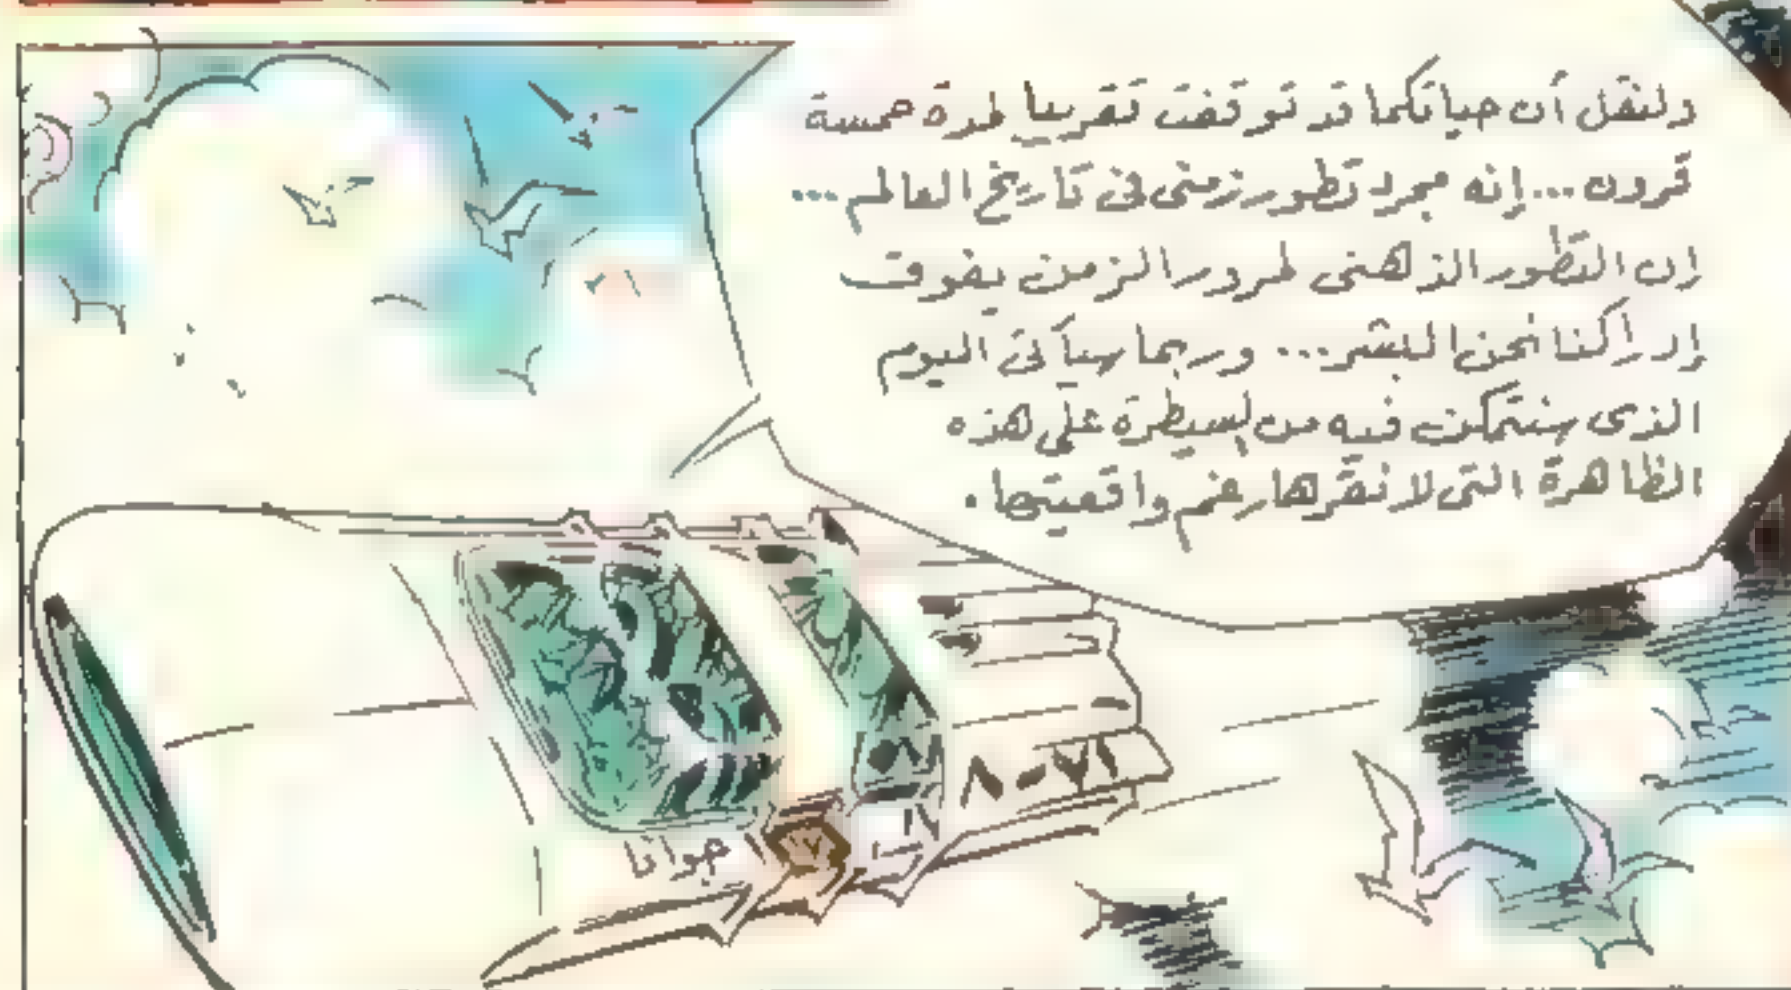 ولنقل أن حياتكما قد توقفت تقريبا لمدة خمسة
قرون... إنه مجرد تطور زمنى فى تاريخ العالم...
إن التطور الذهنى لمرور الزمن يفوق
إدراكنا نحن البشر... وربما سيأتى اليوم
الذى سنتمكن فيه من السيطرة على هذه
الظاهرة التى لا نقرها رغم واقعيتها.
٨-٧٢
جوانا